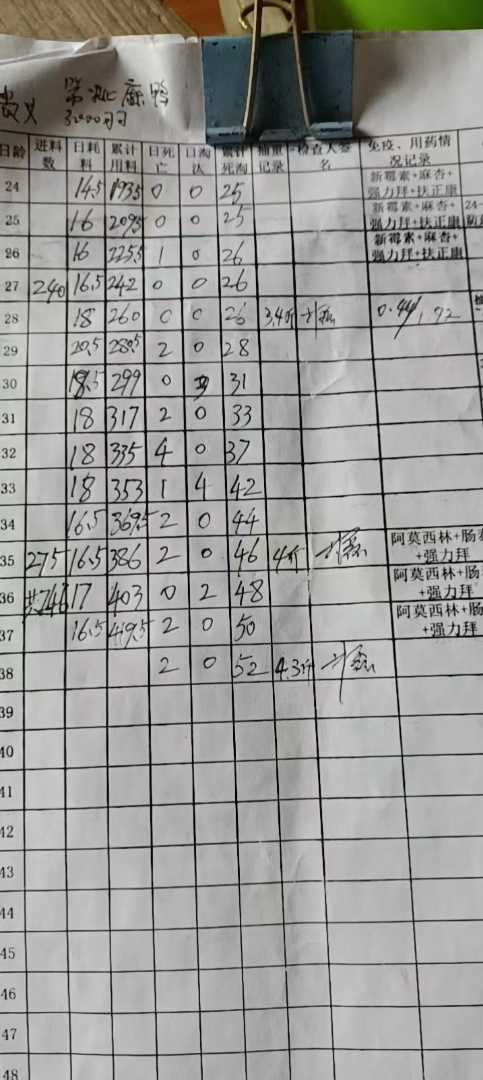 第 批 麻鸭
3000羽
日龄 进料数 日耗料 累计用料 日死亡 日淘汰 累计死淘 抽重记录 检查人签名 免疫、用药情况记录
24 14.5 193.5 0 0 25 新霉素+麻杏+强力拜+扶正康
25 16 209.5 0 0 25 新霉素+麻杏+强力拜+扶正康 24-
26 16 225.5 1 0 26 新霉素+麻杏+强力拜+扶正康
27 240 16.5 242 0 0 26
28 18 260 0 0 26 3.4斤
29 20.5 280.5 2 0 28
30 18.5 299 0 31
31 18 317 2 0 33
32 18 335 4 0 37
33 18 353 1 4 42
34 16.5 369.5 2 0 44
35 275 16.5 386 2 0 46 4斤 阿莫西林+肠+强力拜
36 共746 17 403 0 2 48 阿莫西林+肠+强力拜
37 16.5 419.5 2 0 50 阿莫西林+肠+强力拜
38 2 0 52 4.3斤
39
40
41
42
43
44
45
46
47
48